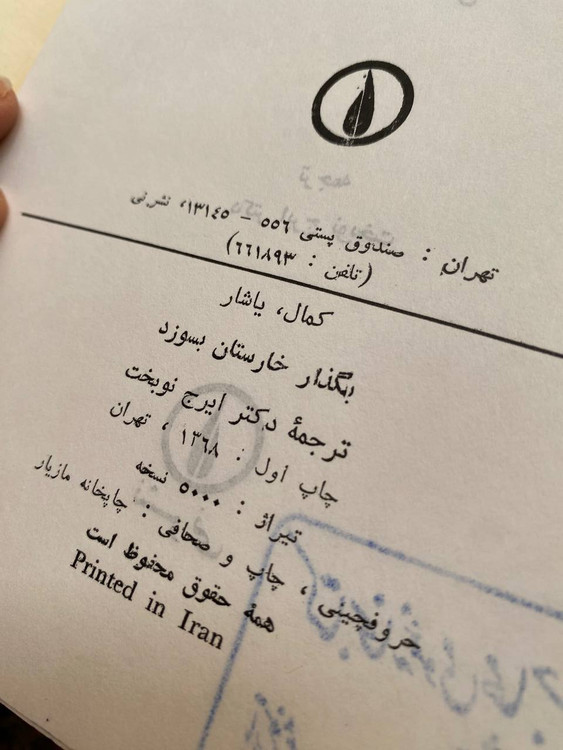 تهران : صندوق پستی ٥٥٦ – ١٣١٤٥، نشرنی
(تلفن : ٦٦١٨٩٣)
کمال، یاشار
بگذار خارستان بسوزد
ترجمهٔ دکتر ایرج نوبخت
چاپ اول : ١٣٦٨ ، تهران
تیراژ : ٥٠٠٠ نسخه
حروفچینی ، چاپ و صحافی : چاپخانه مازیار
همهٔ حقوق محفوظ است
Printed in Iran